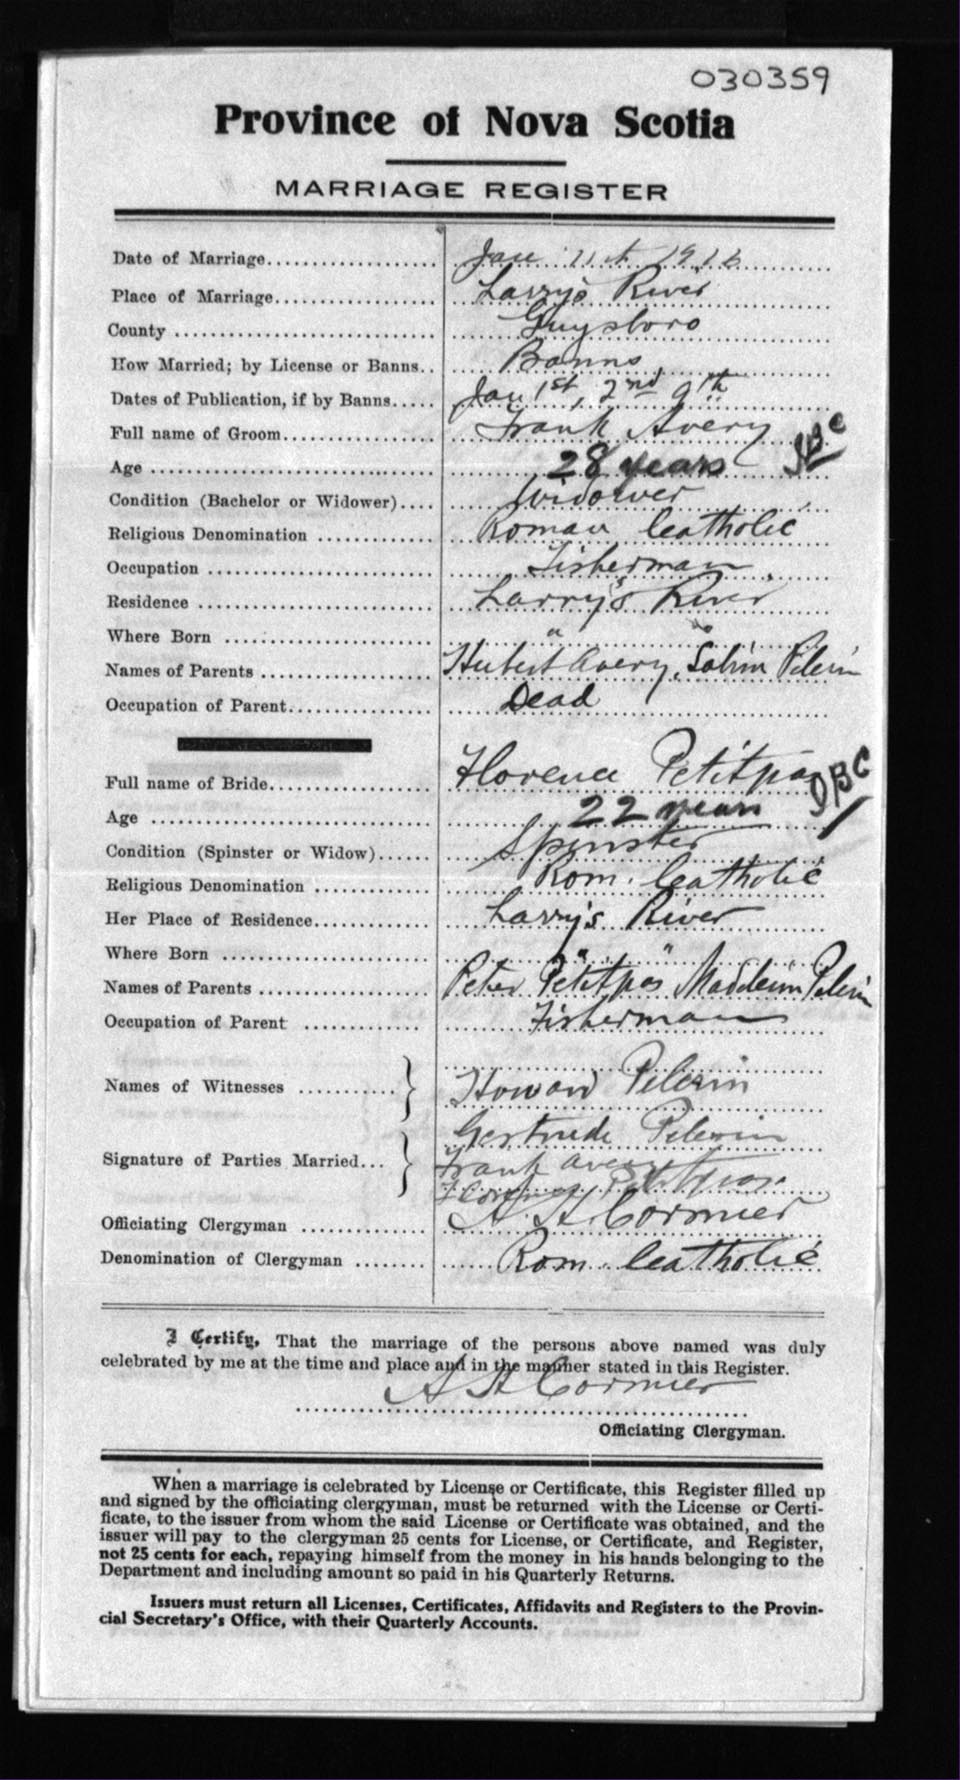 030359
Province of Nova Scotia
MARRIAGE REGISTER
Date of Marriage.................... Jan 11th 1916
Place of Marriage................... Larry's River
County .............................. Guysboro
How Married; by License or Banns.. Banns
Dates of Publication, if by Banns..... Jan 1st, 2nd, 9th
Full name of Groom.................. Frank Avery
Age ................................. 28 years
Condition (Bachelor or Widower).... Widower
Religious Denomination ............. Roman Catholic
Occupation .......................... Fisherman
Residence ........................... Larry's River
Where Born ........................ " "
Names of Parents .................... Hubert Avery, Sabin Pelerin
Occupation of Parent................. Dead
Full name of Bride................... Florence Petitpas
Age ................................. 22 years
Condition (Spinster or Widow)...... Spinster
Religious Denomination ............. Rom. Catholic
Her Place of Residence.............. Larry's River
Where Born ........................ " "
Names of Parents .................... Peter Petitpas Madeleim Pelerin
Occupation of Parent .............. Fisherman
Names of Witnesses ........... } Howard Pelerin
Gertrude Pelerin
Signature of Parties Married... } Frank Avery
Florence Petitpas
Officiating Clergyman ............... A. H. Cormier
Denomination of Clergyman ......... Rom. Catholic
I Certify, That the marriage of the persons above named was duly
celebrated by me at the time and place and in the manner stated in this Register.
A H Cormier
Officiating Clergyman.
When a marriage is celebrated by License or Certificate, this Register filled up
and signed by the officiating clergyman, must be returned with the License or Certi-
ficate, to the issuer from whom the said License or Certificate was obtained, and the
issuer will pay to the clergyman 25 cents for License, or Certificate, and Register,
not 25 cents for each, repaying himself from the money in his hands belonging to the
Department and including amount so paid in his Quarterly Returns.
Issuers must return all Licenses, Certificates, Affidavits and Registers to the Provin-
cial Secretary's Office, with their Quarterly Accounts.